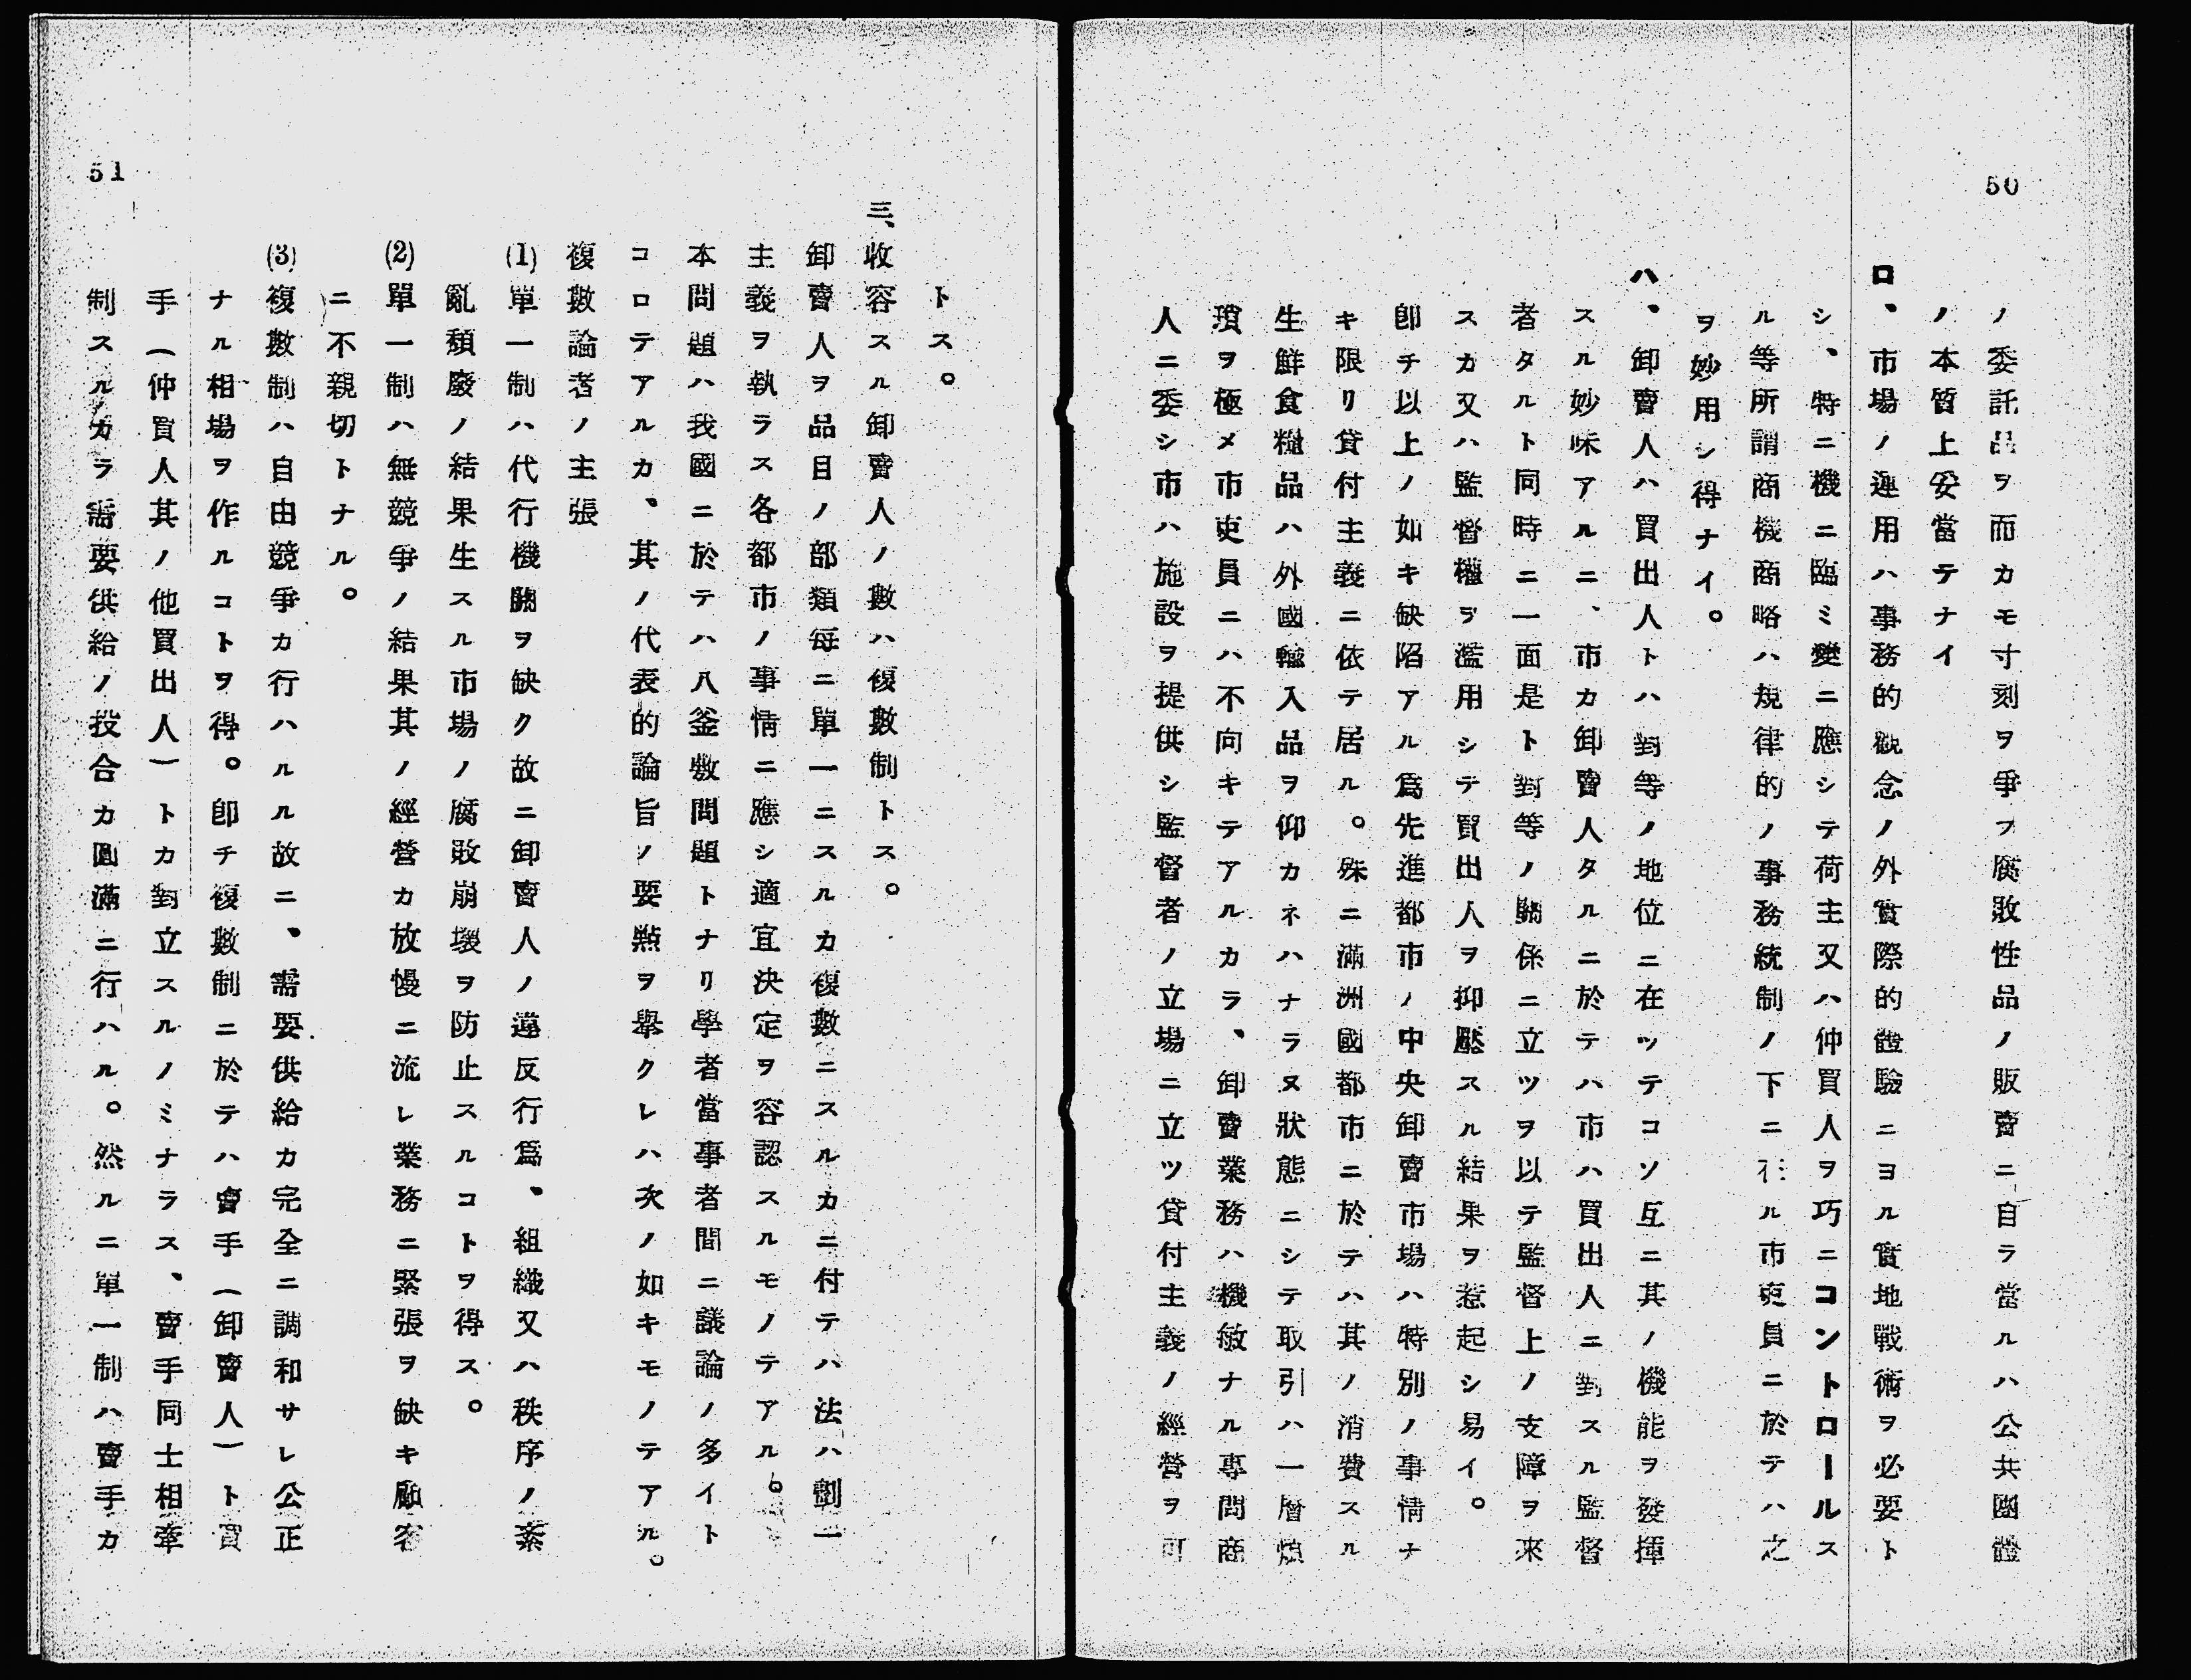 50
ノ委託品ヲ而カモ寸刻ヲ爭フ腐敗性品ノ販賣ニ自ラ當ルハ公共團體
ノ本質上妥當テナイ
ロ、市場ノ運用ハ事務的觀念ノ外實際的體驗ニヨル實地戰術ヲ必要ト
シ、特ニ機ニ臨ミ變ニ應シテ荷主又ハ仲買人ヲ巧ニコントロールス
ル等所謂商機商略ハ規律的ノ事務統制ノ下ニ在ル市吏員ニ於テハ之
ヲ妙用シ得ナイ。
ハ、卸賣人ハ買出人トハ對等ノ地位ニ在ツテコソ互ニ其ノ機能ヲ發揮
スル妙味アルニ、市カ卸賣人タルニ於テハ市ハ買出人ニ對スル監督
者タルト同時ニ一面是ト對等ノ關係ニ立ツヲ以テ監督上ノ支障ヲ來
スカ又ハ監督權ヲ濫用シテ買出人ヲ抑壓スル結果ヲ惹起シ易イ。
卽チ以上ノ如キ缺陷アル爲先進都市ノ中央卸賣市場ハ特別ノ事情ナ
キ限リ貸付主義ニ依テ居ル。殊ニ滿洲國都市ニ於テハ其ノ消費スル
生鮮食糧品ハ外國輸入品ヲ仰カネハナラヌ狀態ニシテ取引ハ一層煩
瑣ヲ極メ市吏員ニハ不向キテアルカラ、卸賣業務ハ機敏ナル專問商
人ニ委シ市ハ施設ヲ提供シ監督者ノ立場ニ立ツ貸付主義ノ經營ヲ可
トス。
三、收容スル卸賣人ノ數ハ複數制トス。
卸賣人ヲ品目ノ部類每ニ單一ニスルカ複數ニスルカニ付テハ法ハ劃一
主義ヲ執ラス各都市ノ事情ニ應シ適宜決定ヲ容認スルモノテアル。
本問題ハ我國ニ於テハ八釜敷問題トナリ學者當事者間ニ議論ノ多イト
コロテアルカ、其ノ代表的論旨ノ要點ヲ舉クレハ次ノ如キモノテアル。
複數論者ノ主張
(1)單一制ハ代行機關ヲ缺ク故ニ卸賣人ノ違反行爲、組織又ハ秩序ノ紊
亂頽廢ノ結果生スル市場ノ腐敗崩壞ヲ防止スルコトヲ得ス。
(2)單一制ハ無競爭ノ結果其ノ經營カ放慢ニ流レ業務ニ緊張ヲ缺キ顧客
ニ不親切トナル。
(3)複數制ハ自由競爭カ行ハルル故ニ、需要供給カ完全ニ調和サレ公正
ナル相場ヲ作ルコトヲ得。卽チ複數制ニ於テハ賣手(卸賣人)ト買
手(仲買人其ノ他買出人)トカ對立スルノミナラス、賣手同士相牽
制スルカラ需要供給ノ投合カ圓滿ニ行ハル。然ルニ單一制ハ賣手カ
51